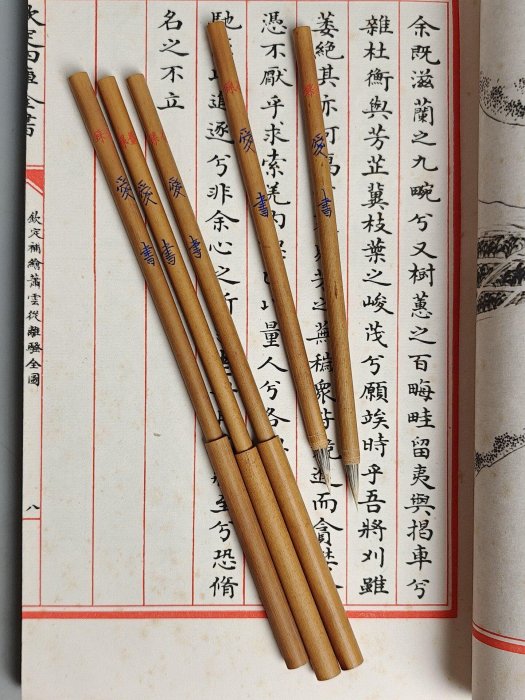 余既滋蘭之九畹兮又樹蕙之百畮畦留夷與揭車兮
雜杜衡與芳芷冀枝葉之峻茂兮願竢時乎吾將刈雖
萎絕其亦何之蕪穢衆皆競進而貪
憑不厭乎求索羌內以量人兮各
馳追逐兮非余心之所至兮恐脩
名之不立
欽定四庫全書
欽定補繪蕭雲從離騷全圖
八
愛書
愛書
愛書
愛書
愛書